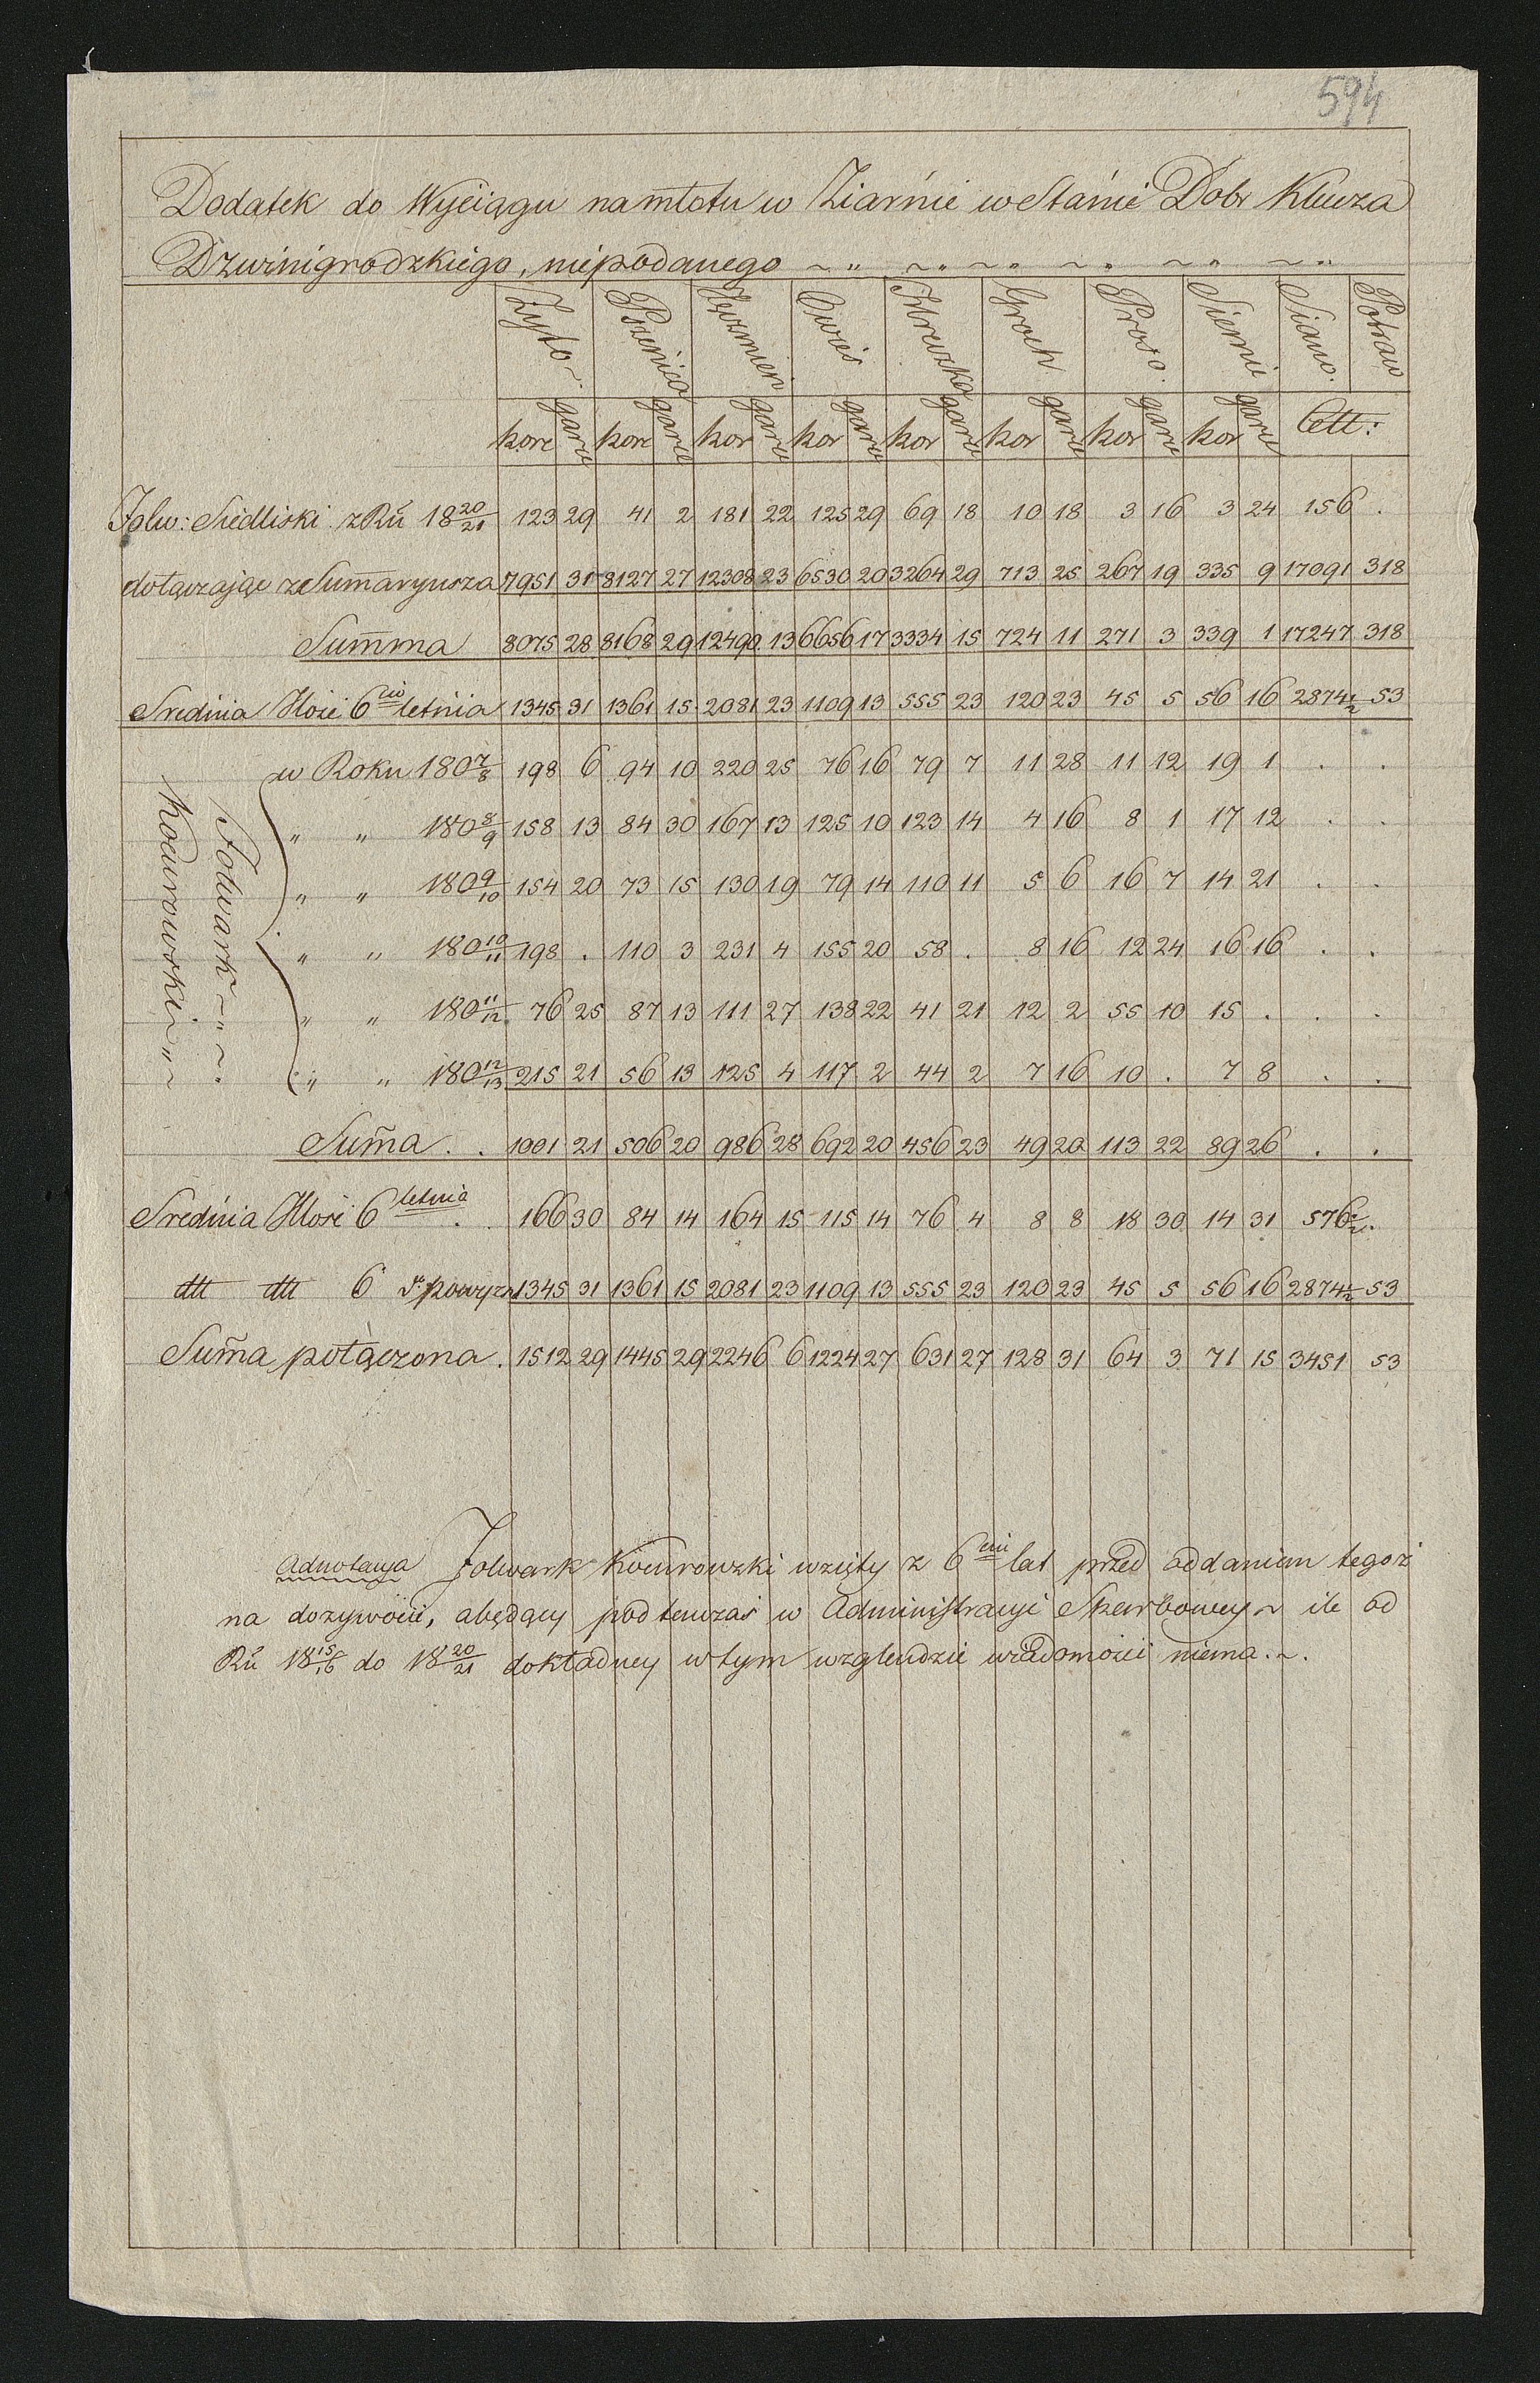 594
Dodatek do Wyciągu namłotu w Ziarnie w Stanie Dobr Klucza
Dzwinigrodzkiego, niepodanego ~ " ~ " ~ " ~ " ~ " ~ "
Żyto ~ Pszenica Jęczmień Owies Hreczka Groch Proso Siemie Siano Potraw
korc garc korc garc kor garc kor garc kor garc kor garc kor garc kor garc Ctt:
Folw: Siedliski z Rŭ 18 20/21 123 29 41 2 181 22 125 29 69 18 10 18 3 16 3 24 156 .
dołączając z Sum̄aryusza 7951 31 8127 27 12308 23 6530 20 3264 29 713 25 267 19 335 9 17091 318
Sum̄ma 8075 28 8168 29 12490 13 6656 17 3334 15 724 11 271 3 339 1 17247 318
Srednia Ilosc 6cio letnia 1345 31 1361 15 2081 23 1109 13 555 23 120 23 45 5 56 16 2874 1/2 53
Folwark ~ " ~
Kocurowski ~ " ~
w Roku 180 7/8 198 6 94 10 220 25 76 16 79 7 11 28 11 12 19 1 . .
" " 180 8/9 158 13 84 30 167 13 125 10 123 14 4 16 8 1 17 12 . .
" " 180 9/10 154 20 73 15 130 19 79 14 110 11 5 6 16 7 14 21 . .
" " 180 10/11 198 . 110 3 231 4 155 20 58 . 8 16 12 24 16 16 . .
" " 180 11/12 76 25 87 13 111 27 138 22 41 21 12 2 55 10 15 . . .
" " 180 12/13 215 21 56 13 125 4 117 2 44 2 7 16 10 . 7 8 . .
Sum̃a . . 1001 21 506 20 986 28 692 20 456 23 49 20 113 22 89 26 . .
Srednia Ilosc 6 letnia . . 166 30 84 14 164 15 115 14 76 4 8 8 18 30 14 31 576 1/2 .
dtt dtt 6 powyzn 1345 31 1361 15 2081 23 1109 13 555 23 120 23 45 5 56 16 2874 1/2 53
Sum̃a połączona . 1512 29 1445 29 2246 6 1224 27 631 27 128 31 64 3 71 15 3451 53
Adnotacya Folwark Kocurowzki wzięty z 6ciu lat przed oddaniem tegoż
na dozywocie, a będący podtenczas w Administracyi Skarbowey ~ ile od
Rŭ 18 15/16 do 18 20/21 dokładney w tym wzglendzie wiadomości niema . ~ .